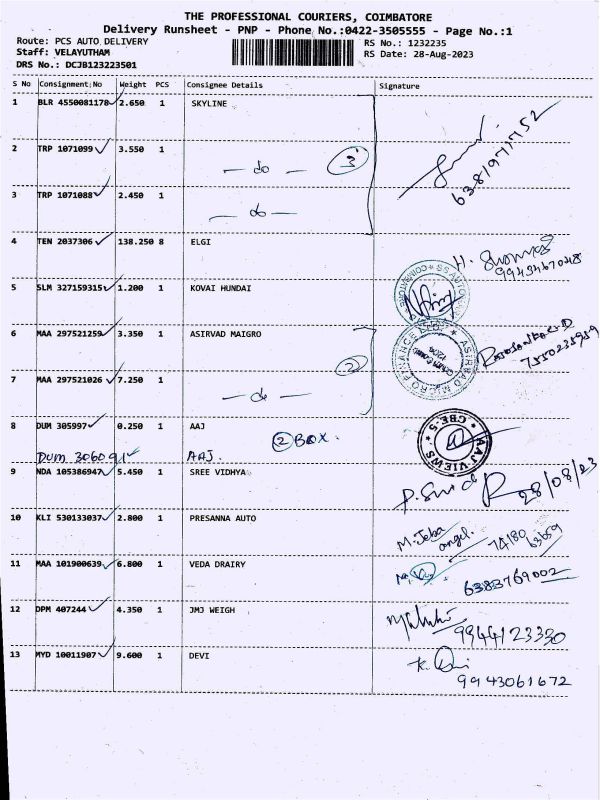 THE PROFESSIONAL COURIERS, COIMBATORE
Delivery Runsheet - PNP - Phone No.:0422-3505555 - Page No.:1
Route: PCS AUTO DELIVERY
Staff: VELAYUTHAM
DRS No.: DCJB123223501
RS No.: 1232235
RS Date: 28-Aug-2023
S No Consignment No Weight PCS Consignee Details Signature
1 BLR 4550081178 2.650 1 SKYLINE
6381971752
2 TRP 1071099 3.550 1
- do - 3
3 TRP 1071088 2.450 1
- do -
4 TEN 2037306 138.250 8 ELGI
9943467048
5 SLM 327159315 1.200 1 KOVAI HUNDAI
6 MAA 297521259 3.350 1 ASIRVAD MAIGRO
7550235959
7 MAA 297521026 7.250 1
- do - 2
8 DUM 305997 0.250 1 AAJ
2 BOX.
DUM 306091 AAJ.
AAJ-VIEWS CBE-5
9 NDA 105386947 5.450 1 SREE VIDHYA
28/08/23
10 KLI 530133037 2.800 1 PRESANNA AUTO
M. Jeba angel. 74180 63159
11 MAA 101900639 6.800 1 VEDA DRAIRY
6383769002
12 DPM 407244 4.350 1 JMJ WEIGH
9944123330
13 MYD 10011907 9.600 1 DEVI
9943061672